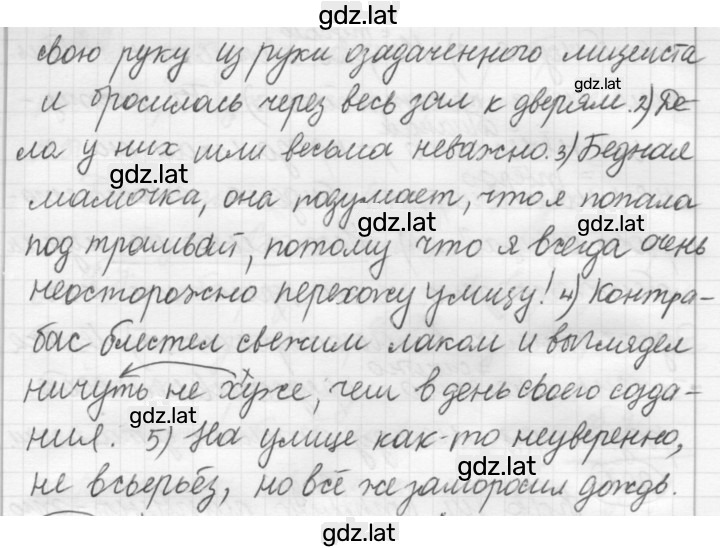 gdz.lat
свою руку из руки озадаченного лицеиста
gdz.lat
и бросилась через весь зал к дверям. 2) Де-
ла у них шли весьма неважно. 3) Бедная
gdz.lat
мамочка, она подумает, что я попала
gdz.lat gdz.lat
под трамвай, потому что я всегда очень
неосторожно перехожу улицу! 4) Контра-
бас блестел свежим лаком и выглядел
ничуть не хуже, чем в день своего созда-
gdz.lat
ния. 5) На улице как-то неуверенно,
gdz.lat
не всерьёз, но всё же заморосил дождь.
gdz.lat